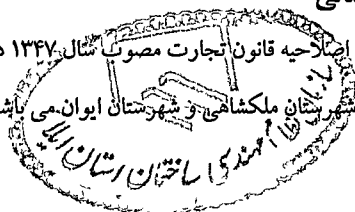 اصلاحیه قانون تجارت مصوب سال ۱۳۴۷
شهرستان ملکشاهی و شهرستان ایوان می باشد
سازمان نظام مهندسی ساختمان استان ایلام